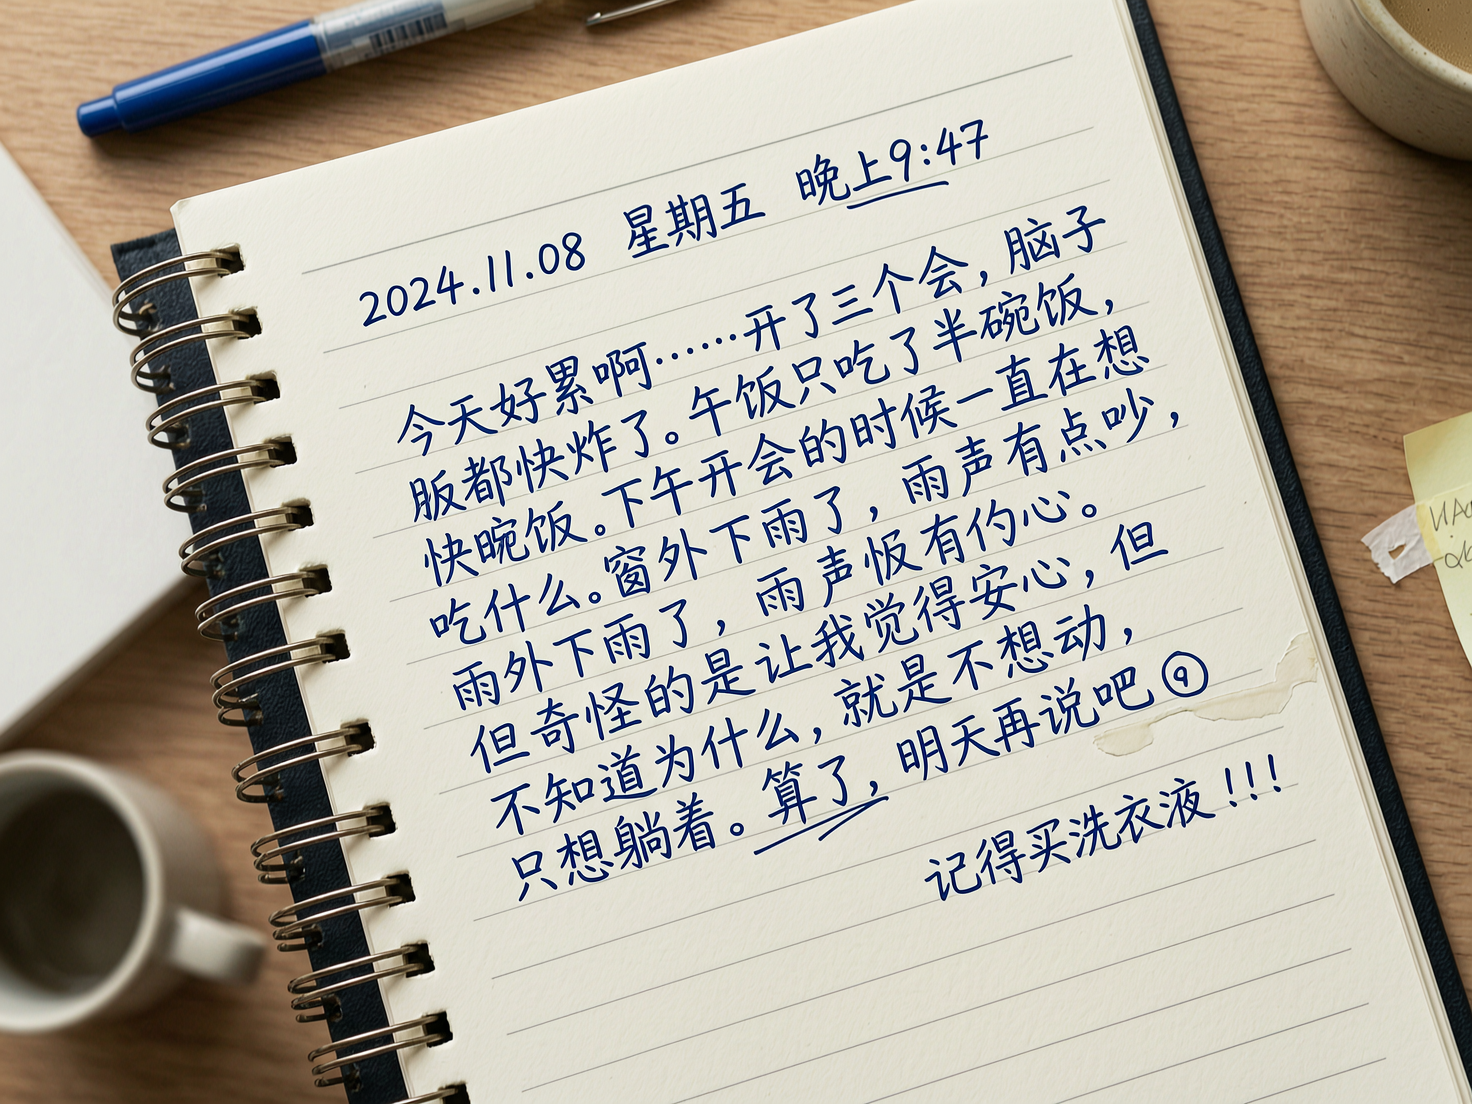 2024.11.08 星期五 晚上9:47
今天好累啊……开了三个会，脑子
眅都快炸了。午饭只吃了半碗饭，
快晼饭。下午开会的时候一直在想
吃什么。窗外下雨了，雨声有点吵，
雨外下雨了，雨声恢有的心。
但奇怪的是让我觉得安心，但
不知道为什么，就是不想动，
只想躺着。算了，明天再说吧 ⑨
记得买洗衣液!!!